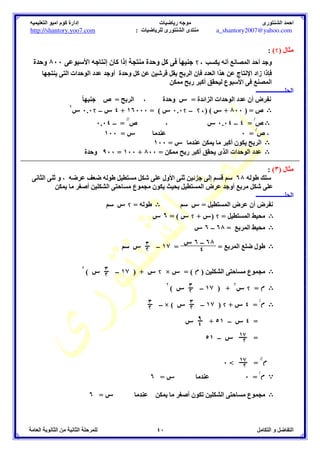 أحمد الشنتورى
موجه رياضيات
إدارة كوم أمبو التعليميه
a_shantory2007@yahoo.com
منتدى الشنتورى للرياضيات :
http://shantory.yoo7.com
مثال (٢) :
وجد أحد المصانع أنه يكسب ٢٠ جنيهاً فى كل وحدة منتجة إذا كان إنتاجه الأسبوعى ٨٠٠ وحدة
فإذا زاد الإنتاج عن هذا العدد فإن الربح يقل قرشين عن كل وحدة أوجد عدد الوحدات التى ينتجها
المصنع فى الأسبوع ليحقق أكبر ربح ممكن
الحل
نفرض أن عدد الوحدات الزائدة = س وحدة ، الربح = ص جنيهاً
∴ ص = ( ٨٠٠ + س ) ( ٢٠ – ٠.٠٢ س ) = ١٦٠٠٠ + ٤ س – ٠.٠٢ س٢
∴ صَ = ٤ – ٠.٠٤ س ، صً = – ٠.٠٤
، صَ = ٠ عندما س = ١٠٠
∴ الربح يكون أكبر ما يمكن عندما س = ١٠٠
∴ عدد الوحدات الذى يحقق أكبر ربح ممكن = ٨٠٠ + ١٠٠ = ٩٠٠ وحدة
مثال (٣) :
سلك طوله ٦٨ سم قسم إلى جزئين ثنى الأول على شكل مستطيل طوله ضعف عرضه ، و ثنى الثانى
على شكل مربع أوجد عرض المستطيل بحيث يكون مجموع مساحتى الشكلين أصغر ما يمكن
الحل
نفرض أن عرض المستطيل = س سم ∴ طوله = ٢ س سم
∴ محيط المستطيل = ٢ ( س + ٢ س ) = ٦ س
∴ محيط المربع = ٦٨ – ٦ س
∴ طول ضلع المربع = (٦٨ – ٦ س)/٤ = ١٧ – ٣/٢ س سم
∴ مجموع مساحتى الشكلين ( م ) = س × ٢ س + ( ١٧ – ٣/٢ س )٢
∴ م = ٢ س٢ + ( ١٧ – ٣/٢ س )٢
∴ مَ = ٤ س + ٢ ( ١٧ – ٣/٢ س ) × – ٣/٢
= ٤ س – ٥١ + ٩/٢ س
= ١٧/٢ س – ٥١
مً = ١٧/٢ > ٠
∵ مَ = ٠ عندما س = ٦
∴ مجموع مساحتى الشكلين تكون أصغر ما يمكن عندما س = ٦
التفاضل و التكامل
٤٠
للمرحلة الثانية من الثانوية العامة